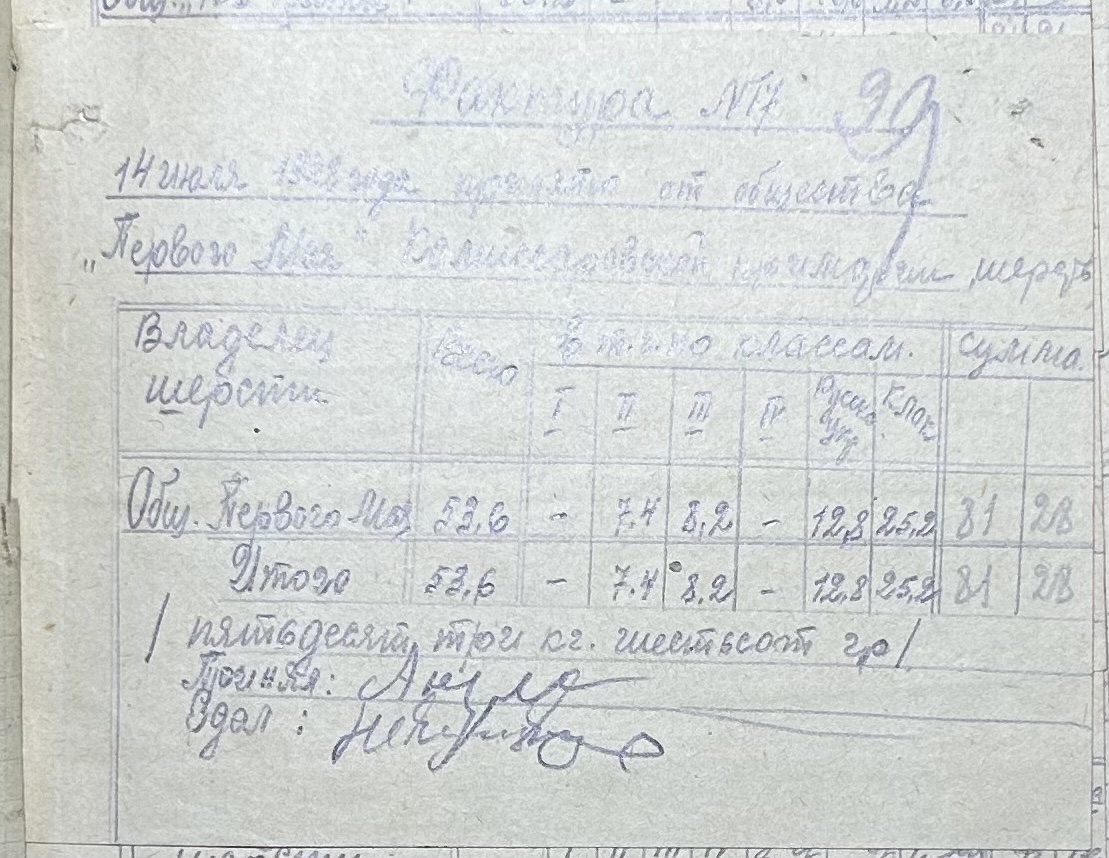 Фактура №17 39
14 июля года принято от общества
"Первого Мая" шерсть
Владелец шерсти Всего В т.ч. по классам. сумма.
I II III IV Русско укр Клок.
Общ. Первого Мая 53,6 - 7.4 8,2 - 12,8 25,2 81 28
Итого 53,6 - 7.4 8,2 - 12,8 25,2 81 28
/ пятьдесят три кг. шестьсот гр/
Принял:
Сдал: